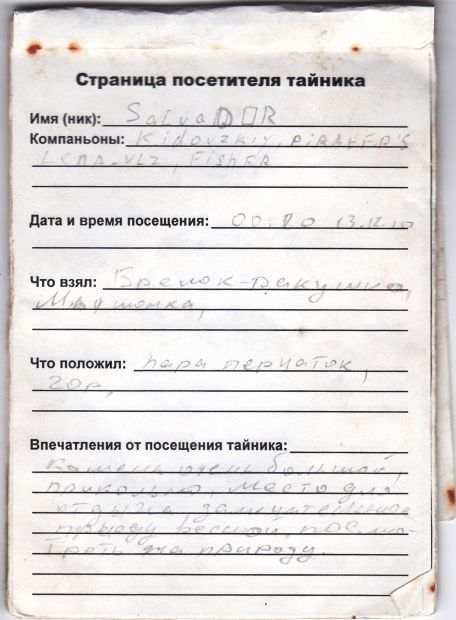 Страница посетителя тайника
Имя (ник): SalvaDOR
Компаньоны: Kinovzkiy,
Lena-vlz, Fisher
Дата и время посещения: 13.12.10
Что взял: Брелок-ракушка,
Что положил: пара перчаток,
20р,
Впечатления от посещения тайника:
Камень очень большой,
прикольно, место для
отдыха замечательное
приеду весной, посмо-
треть на природу.